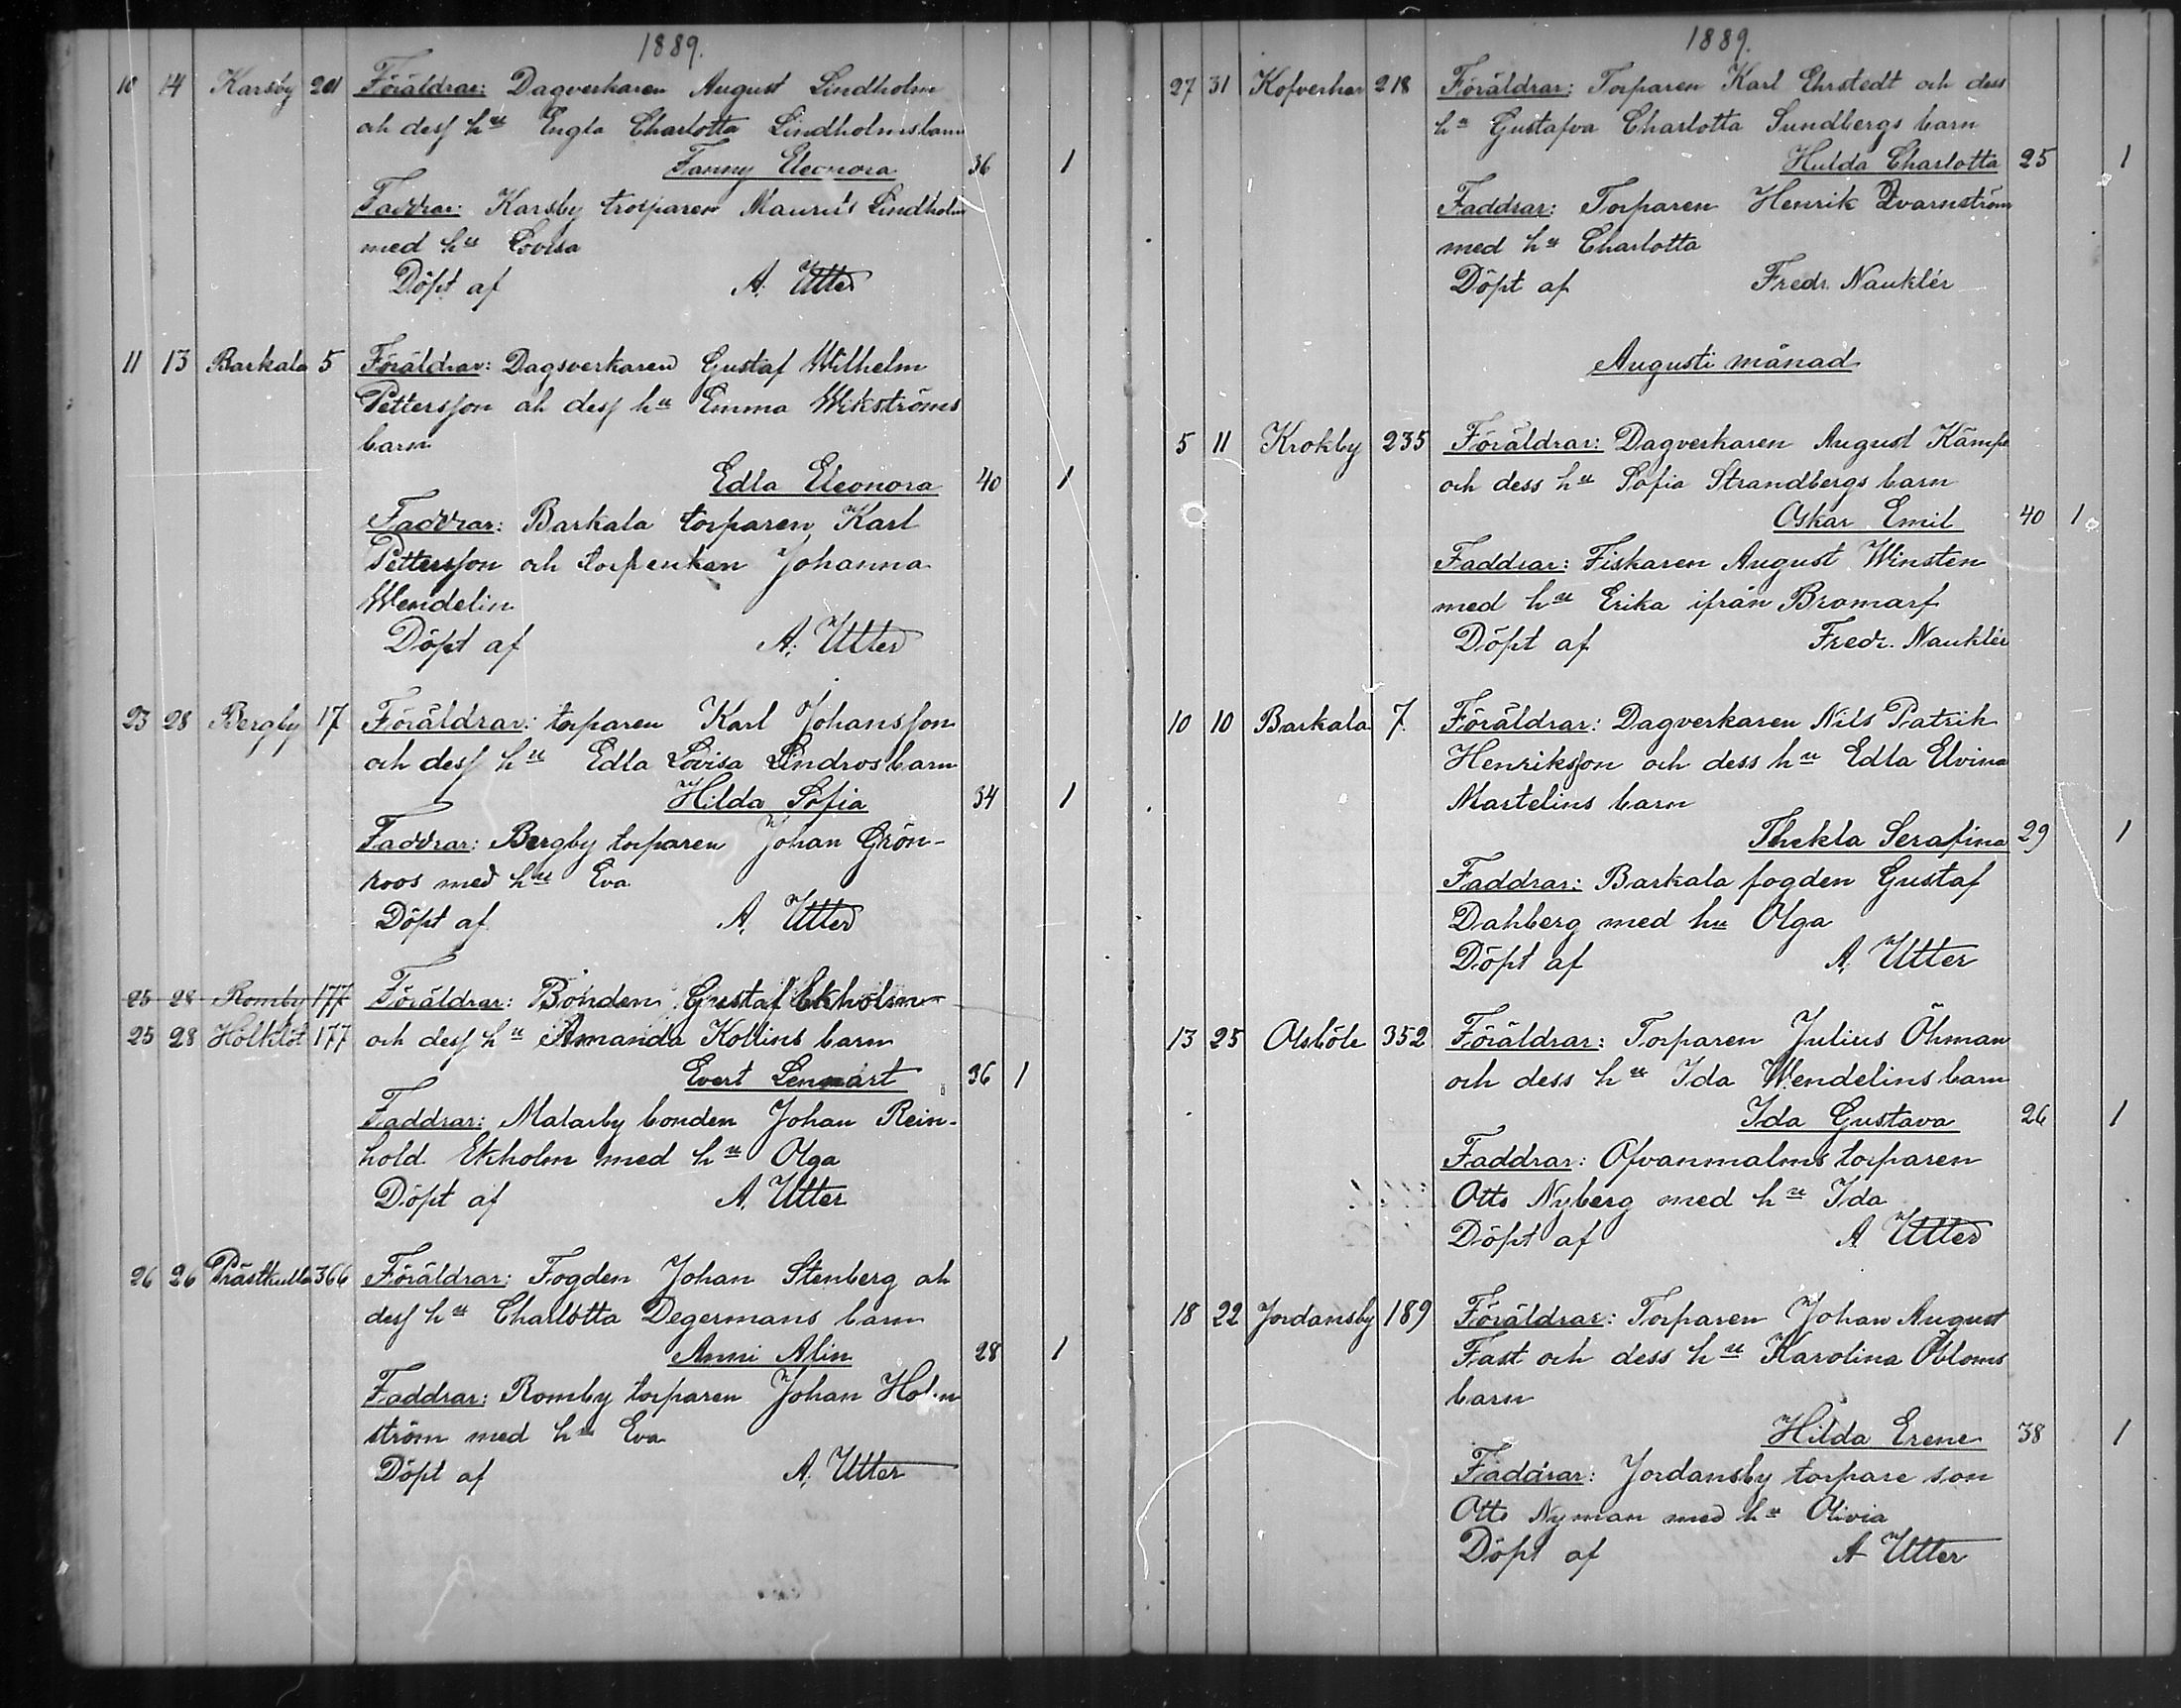 1889.
10 14 Karsby 201 Föräldrar: Dagverkaren August Lindholm
och dess hu Engla Charlotta Lindholms barn
Fanny Eleonora 36 1
Faddrar: Karsby trorparen Maurits Lindholm
med hu Lovisa
Döpt af A. Utter
11 13 Barkala 5 Föräldrar: Dagsverkaren Gustaf Wilhelm
Pettersson och dess hu Emma Wikströms
barn
Edla Eleonora 40 1
Faddrar: Barkala torparen Karl
Pettersson och torpenkan Johanna
Wendelin
Döpt af A. Utter
23 28 Bergby 17 Föräldrar: torparen Karl Johansson
och dess hu Edla Lovisa Lindros barn
Hilda Sofia 34 1
Faddrar: Bergby torparen Johan Grön-
roos med hu Eva
Döpt af A. Utter
25 28 Romby 177 Föräldrar: Bonden Gustaf Ekholm
25 28 Holklot 177 och dess hu Amanda Kollins barn
Evert Lennart 36 1
Faddrar: Malarby bonden Johan Rein-
hold Ekholm med hu Olga
Döpt af A. Utter
26 26 Prästkulla 366 Föräldrar: Fogden Johan Stenberg och
dess hu Charlotta Degermans barn
Anni Alin 28 1
Faddrar: Romby torparen Johan Holm
ström med hu Eva
Döpt af A. Utter
1889.
27 31 Kofverhar 218 Föräldrar: Torparen Karl Ehrstedt och dess
hu Gustafva Charlotta Sundbergs barn
Hulda Charlotta 25 1
Faddrar: Torparen Henrik Qvarnström
med hu Charlotta
Döpt af Fredr. Nauklér
Augusti månad
5 11 Krokby 235 Föräldrar: Dagverkaren August Kämpe
och dess hu Sofia Strandbergs barn
Oskar Emil 40 1
Faddrar: Fiskaren August Winsten
med hu Erika ifrån Bromarf
Döpt af Fredr. Nauklér
10 10 Barkala 7 Föräldrar: Dagverkaren Nils Patrik
Henriksson och dess hu Edla Elvina
Martelins barn
Thekla Serafina 29 1
Faddrar: Barkala fogden Gustaf
Dahberg med hu Olga
Döpt af A. Utter
13 25 Olsböle 352 Föräldrar: Torparen Julius Öhman
och dess hu Ida Wendelins barn
Ida Gustava 26 1
Faddrar: Ofvanmalms torparen
Otto Nyberg med hu Ida
Döpt af A Utter
18 22 Jordansby 189 Föräldrar: Torparen Johan August
Fast och dess hu Karolina Öbloms
barn
Hilda Erene 38 1
Faddrar: Jordansby torpare son
Otto Nyman med hu Olivia
Döpt af A Utter